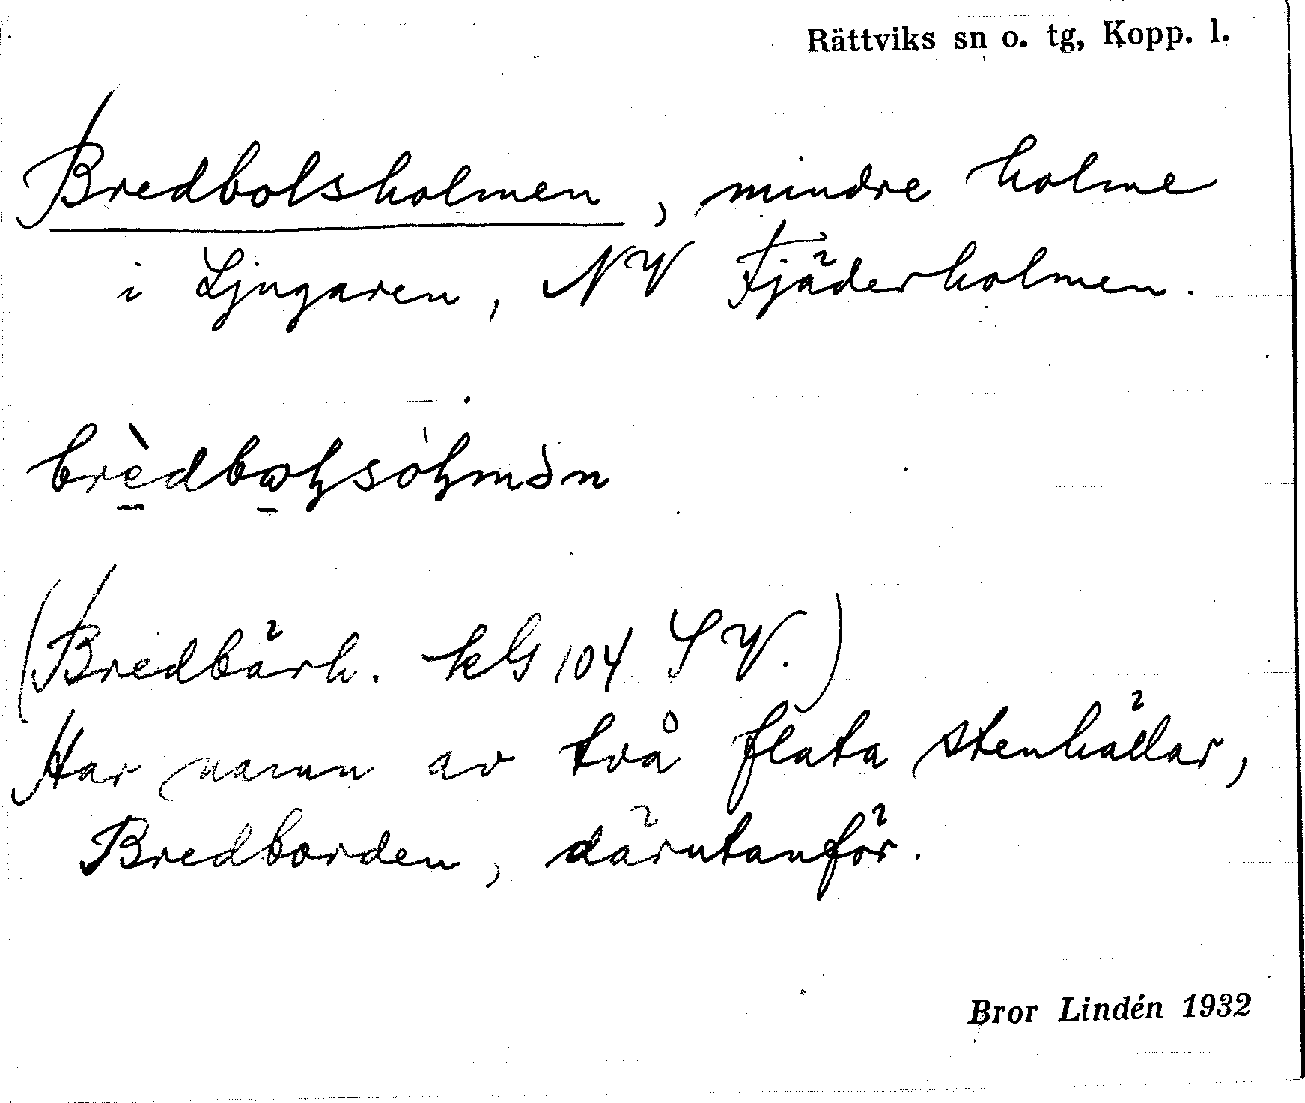 Rättviks sn o. tg, Kopp. l.
Bredbolsholmen, mindre holme
i Ljugaren, NV Fjäderholmen.
(Bredbärh. kbl 104 SV.)
Har namn av två flata stenhällar,
Bredborden, därutanför.
Bror Lindén 1932